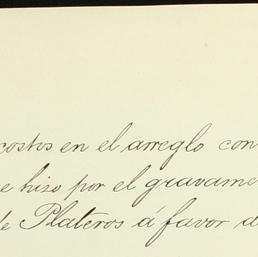 costos en el arreglo con
e hizo por el gravame
de Plateros á favor d